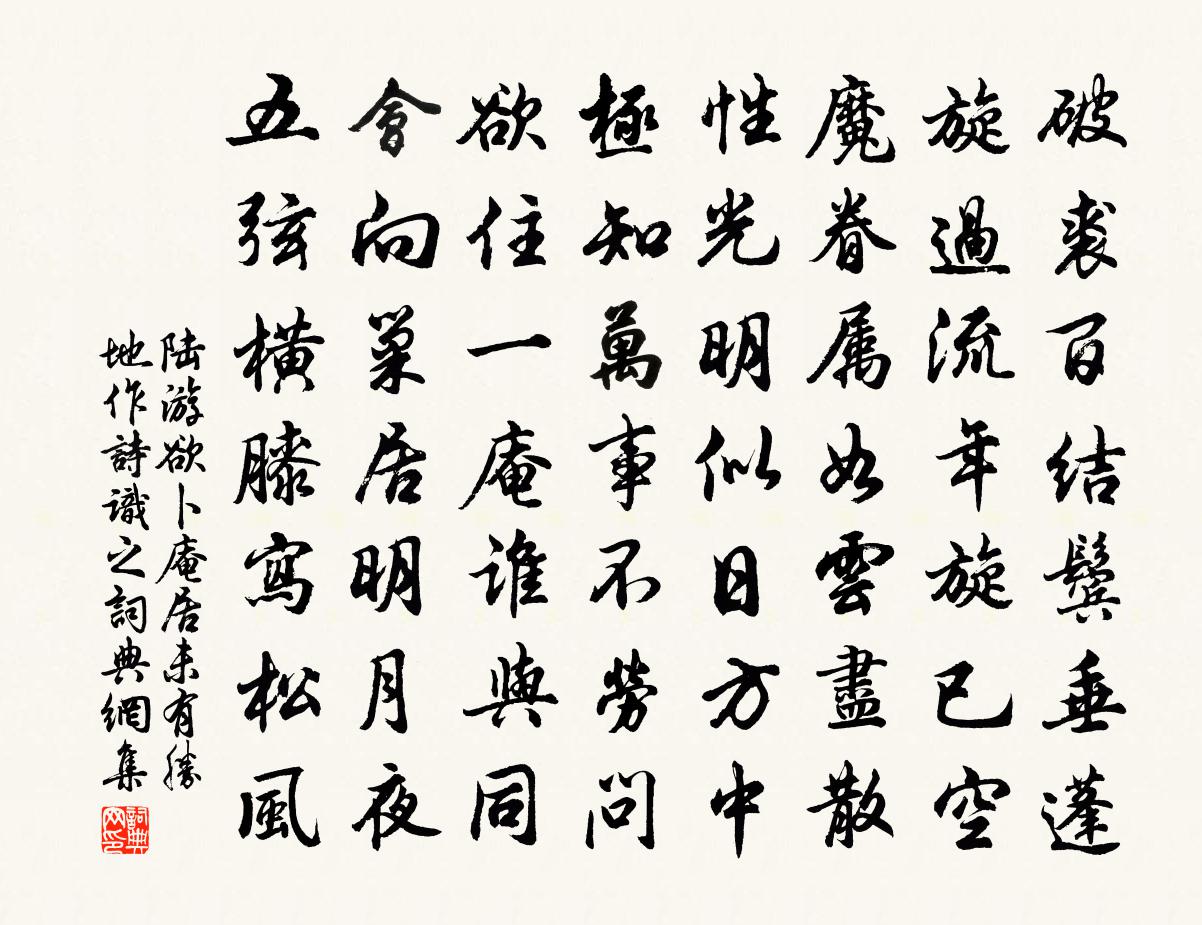 破裘百結鬢垂蓬
旋過流年旋已空
魔眷属如雲盡散
性光明似日方中
極知萬事不勞問
欲住一庵誰與同
會向巢居明月夜
五弦横膝寫松風
陆游欲卜庵居未有勝
地作詩識之詞典網集
詞典
网印